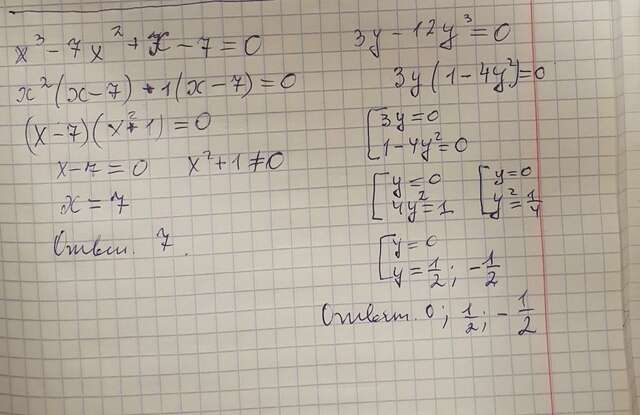 x³ - 7x² + x - 7 = 0
x²(x-7) + 1(x-7) = 0
(x-7)(x²+1) = 0
x-7 = 0 x²+1 ≠ 0
x = 7
Ответ. 7.
3y - 12y³ = 0
3y(1-4y²) = 0
[3y = 0
1-4y² = 0
[y = 0 [y = 0
4y² = 1 y² = 1/4
[y = 0
y = 1/2; -1/2
Ответ. 0; 1/2; -1/2